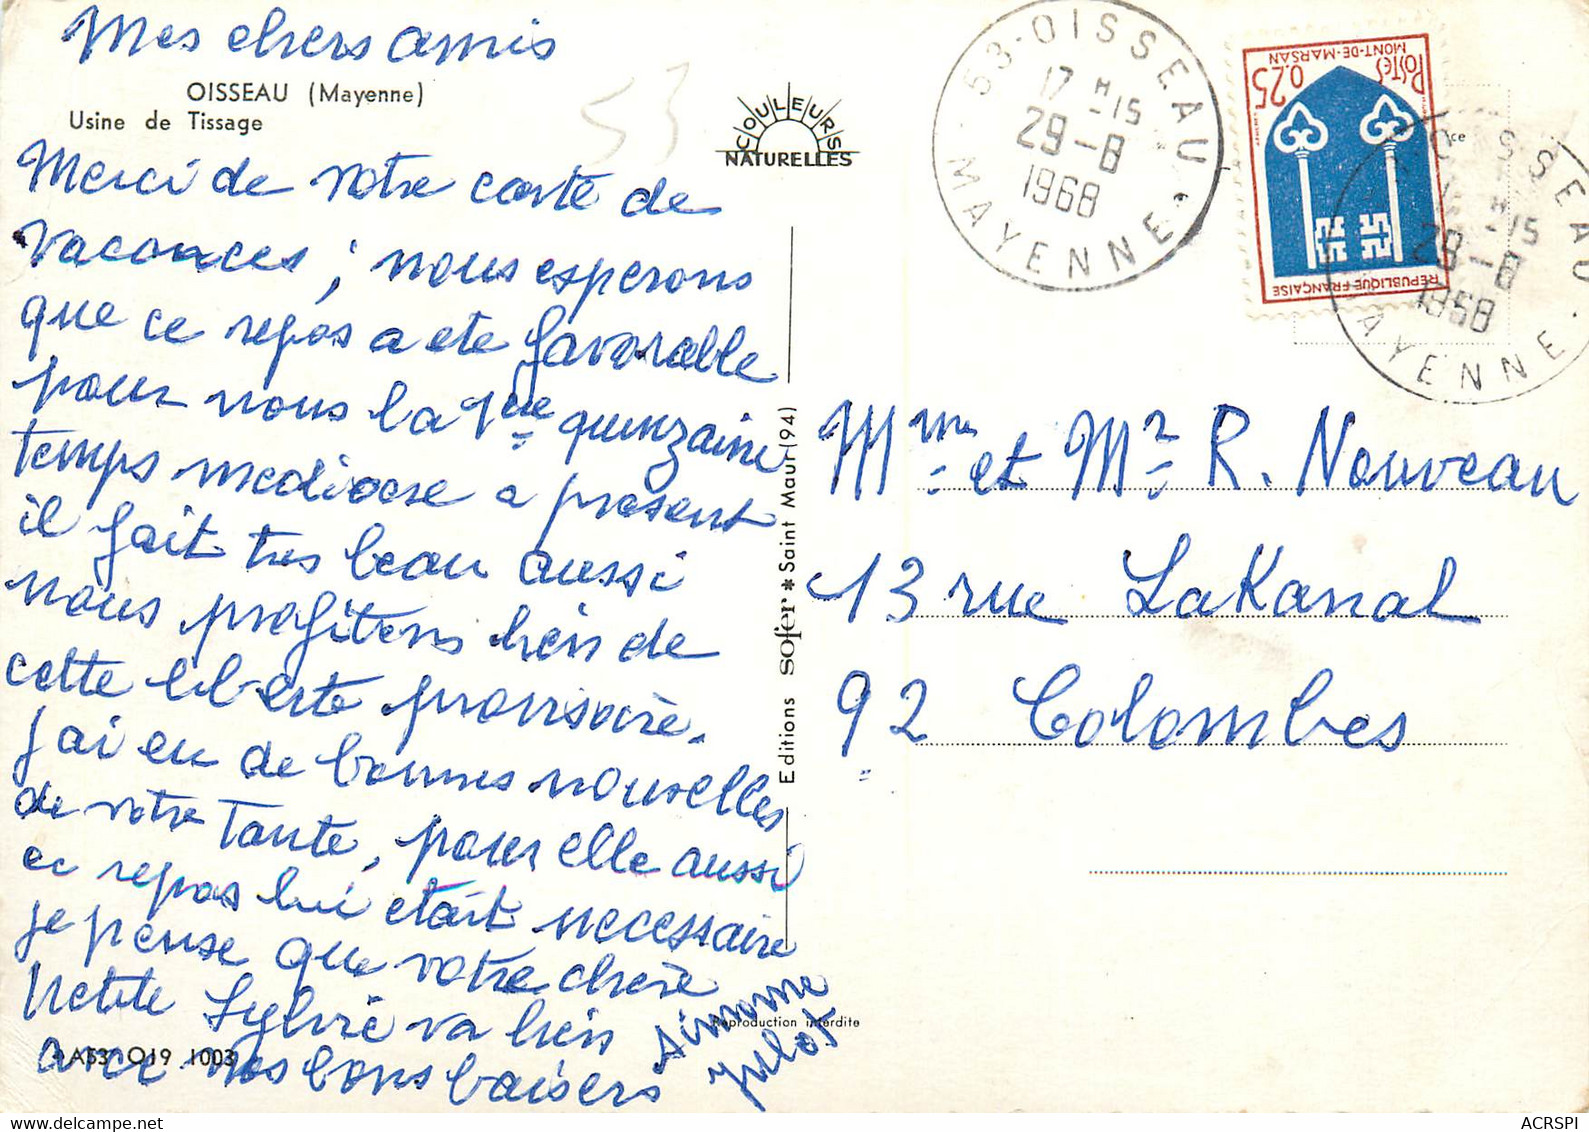 Mes chers amis
OISSEAU (Mayenne)
Usine de Tissage
53
COULEURS
NATURELLES
Merci de votre carte de
vacances ; nous esperons
que ce repos a ete favorable
pour nous la 1ere quinzaine
temps mediocre a present
il fait tres beau aussi
nous profitons bien de
cette liberte provisoire.
J'ai eu de bonnes nouvelles
de votre Tante, pour elle aussi
ce repos lui etait necessaire
je pense que votre chere
petite Sylvie va bien
avec nos bons baisers
Simonne
Julot
AA53 O19 1003
Reproduction interdite
Editions sofer * Saint Maur (94)
53-OISSEAU
17 H -15
29-8
1968
MAYENNE
POSTES
MONT-DE-MARSAN
0.25
REPUBLIQUE-FRANÇAISE
OISSEAU
H -15
29-8
1968
MAYENNE
Mme et Mr R. Nouveau
13 rue LaKanal
92 Colombes
ACRSPI